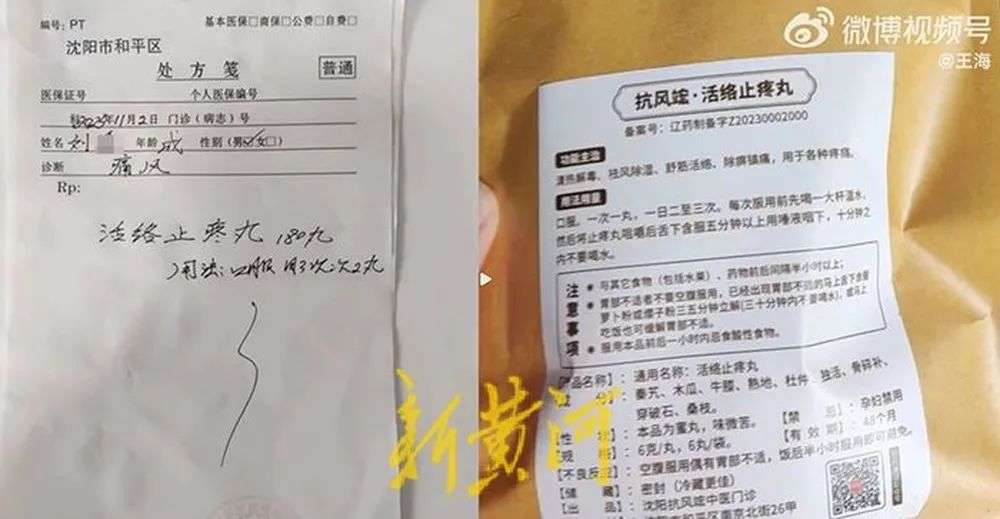 编号：PT
基本医保□商保□公费□自费□
沈阳市和平区
处方笺
普通
医保证号 个人医保编号
2023年11月2日 门诊（病志）号
姓名 刘 年龄 成 性别（男☑女□）
诊断 痛风
Rp:
活络止疼丸 180丸
用法：口服 日3次 次2丸
新黄河
微博视频号
@王海
抗风竤·活络止疼丸
备案号：辽药制备字Z20230002000
功能主治
清热解毒、祛风除湿、舒筋活络、除痹镇痛，用于各种疼痛。
用法用量
口服，一次一丸，一日二至三次。每次服用前先喝一大杯温水，
然后将止疼丸咀嚼后舌下含服五分钟以上用唾液咽下，十分钟之
内不要喝水。
注意事项
● 与其它食物（包括水果）、药物前后间隔半小时以上；
● 胃部不适者不要空腹服用，已经出现胃部不适的马上舌下含服
萝卜粉或馒子粉三五分钟立解(三十分钟内不要喝水)，或马上
吃饭也可缓解胃部不适。
● 服用本品前后一小时内忌食酸性食物。
【产品名称】：通用名称：活络止疼丸
【成 分】：秦艽、木瓜、牛膝、熟地、杜仲、独活、骨碎补、
穿破石、桑枝。
【禁 忌】：孕妇禁用
【性 状】：本品为蜜丸，味微苦。
【有 效 期】：48个月
【规 格】：6克/丸，6丸/袋。
【不良反应】：空腹服用偶有胃部不适，饭后半小时服用即可避免。
【储 藏】：密封（冷藏更佳）
【出 品】：沈阳抗风竤中医门诊
沈阳市和平区南京北街26甲